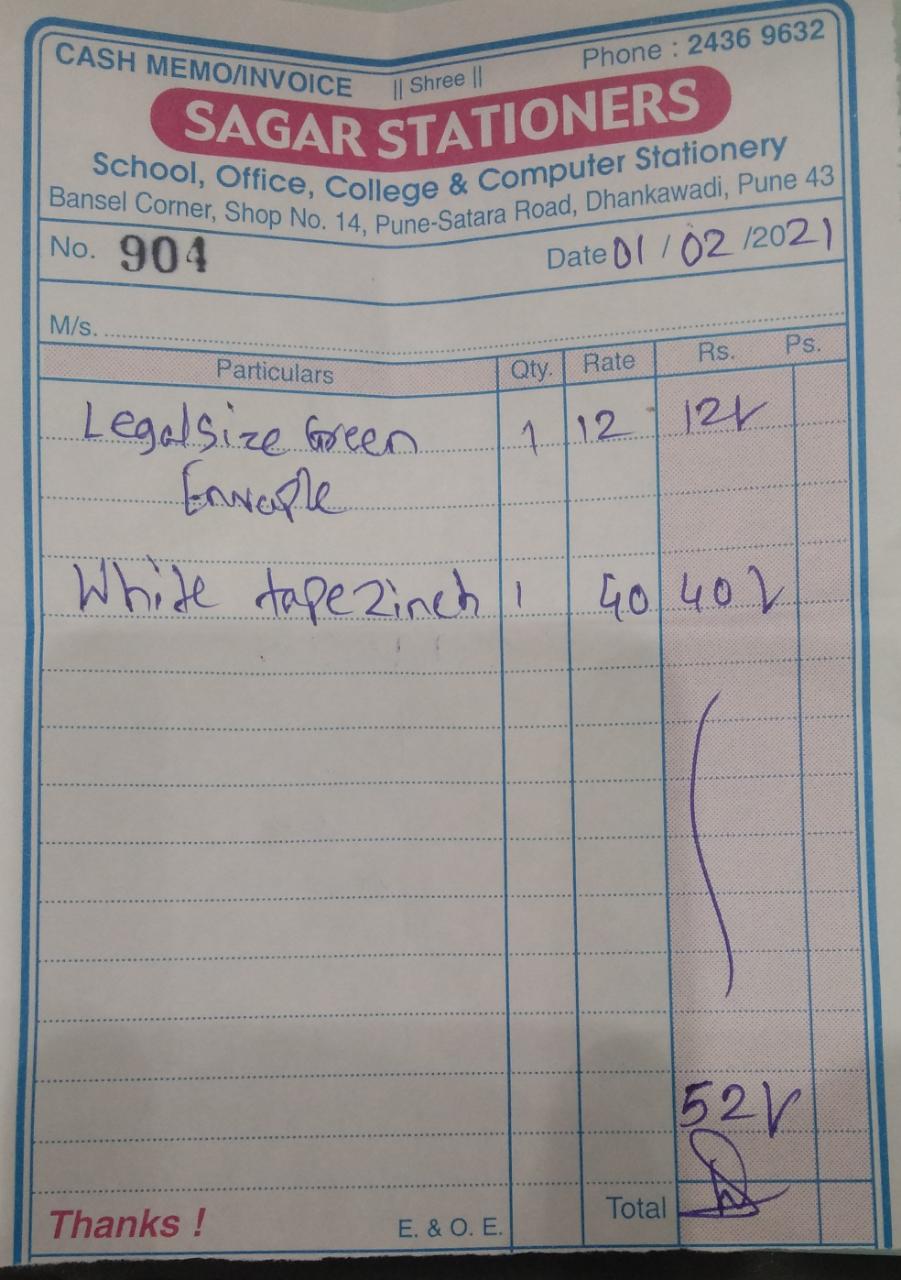 CASH MEMO/INVOICE || Shree || Phone : 2436 9632
SAGAR STATIONERS
School, Office, College & Computer Stationery
Bansel Corner, Shop No. 14, Pune-Satara Road, Dhankawadi, Pune 43
No. 904 Date 01 / 02 /2021
M/s.
Particulars Qty. Rate Rs. Ps.
Legal Size Green 1 12 12
Envaple
White tape 2 inch 1 40 40
52
Total
Thanks ! E. & O. E.